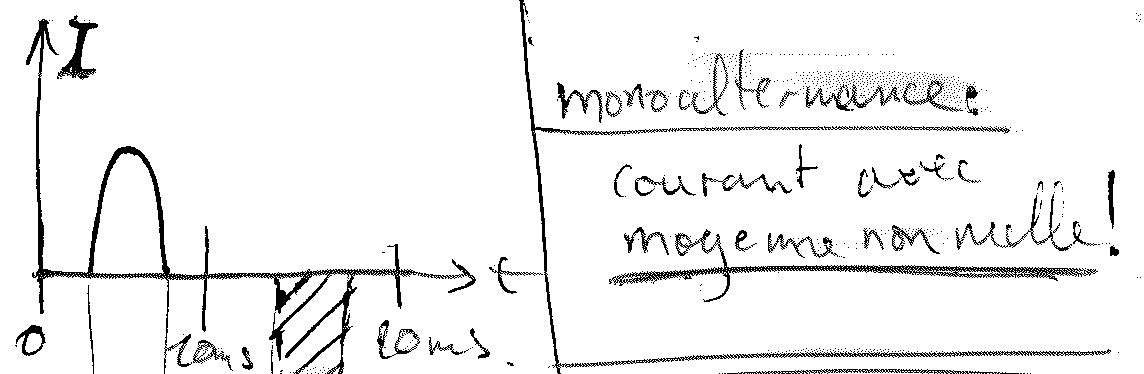 I
monoalternance:
courant avec
moyenne non nulle!
t
0
10ms
20ms.